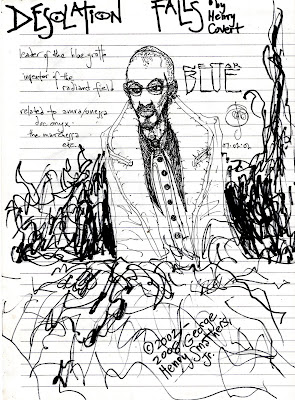 DESOLATION FALLS
by Henry Covert
leader of the blue grotto
inventor of the
radiant field
related to
doc onyx
the
etc.
NESTOR
BLUE
07.02.02
©2002-
2008 George
Henry Smathers,
Jr.